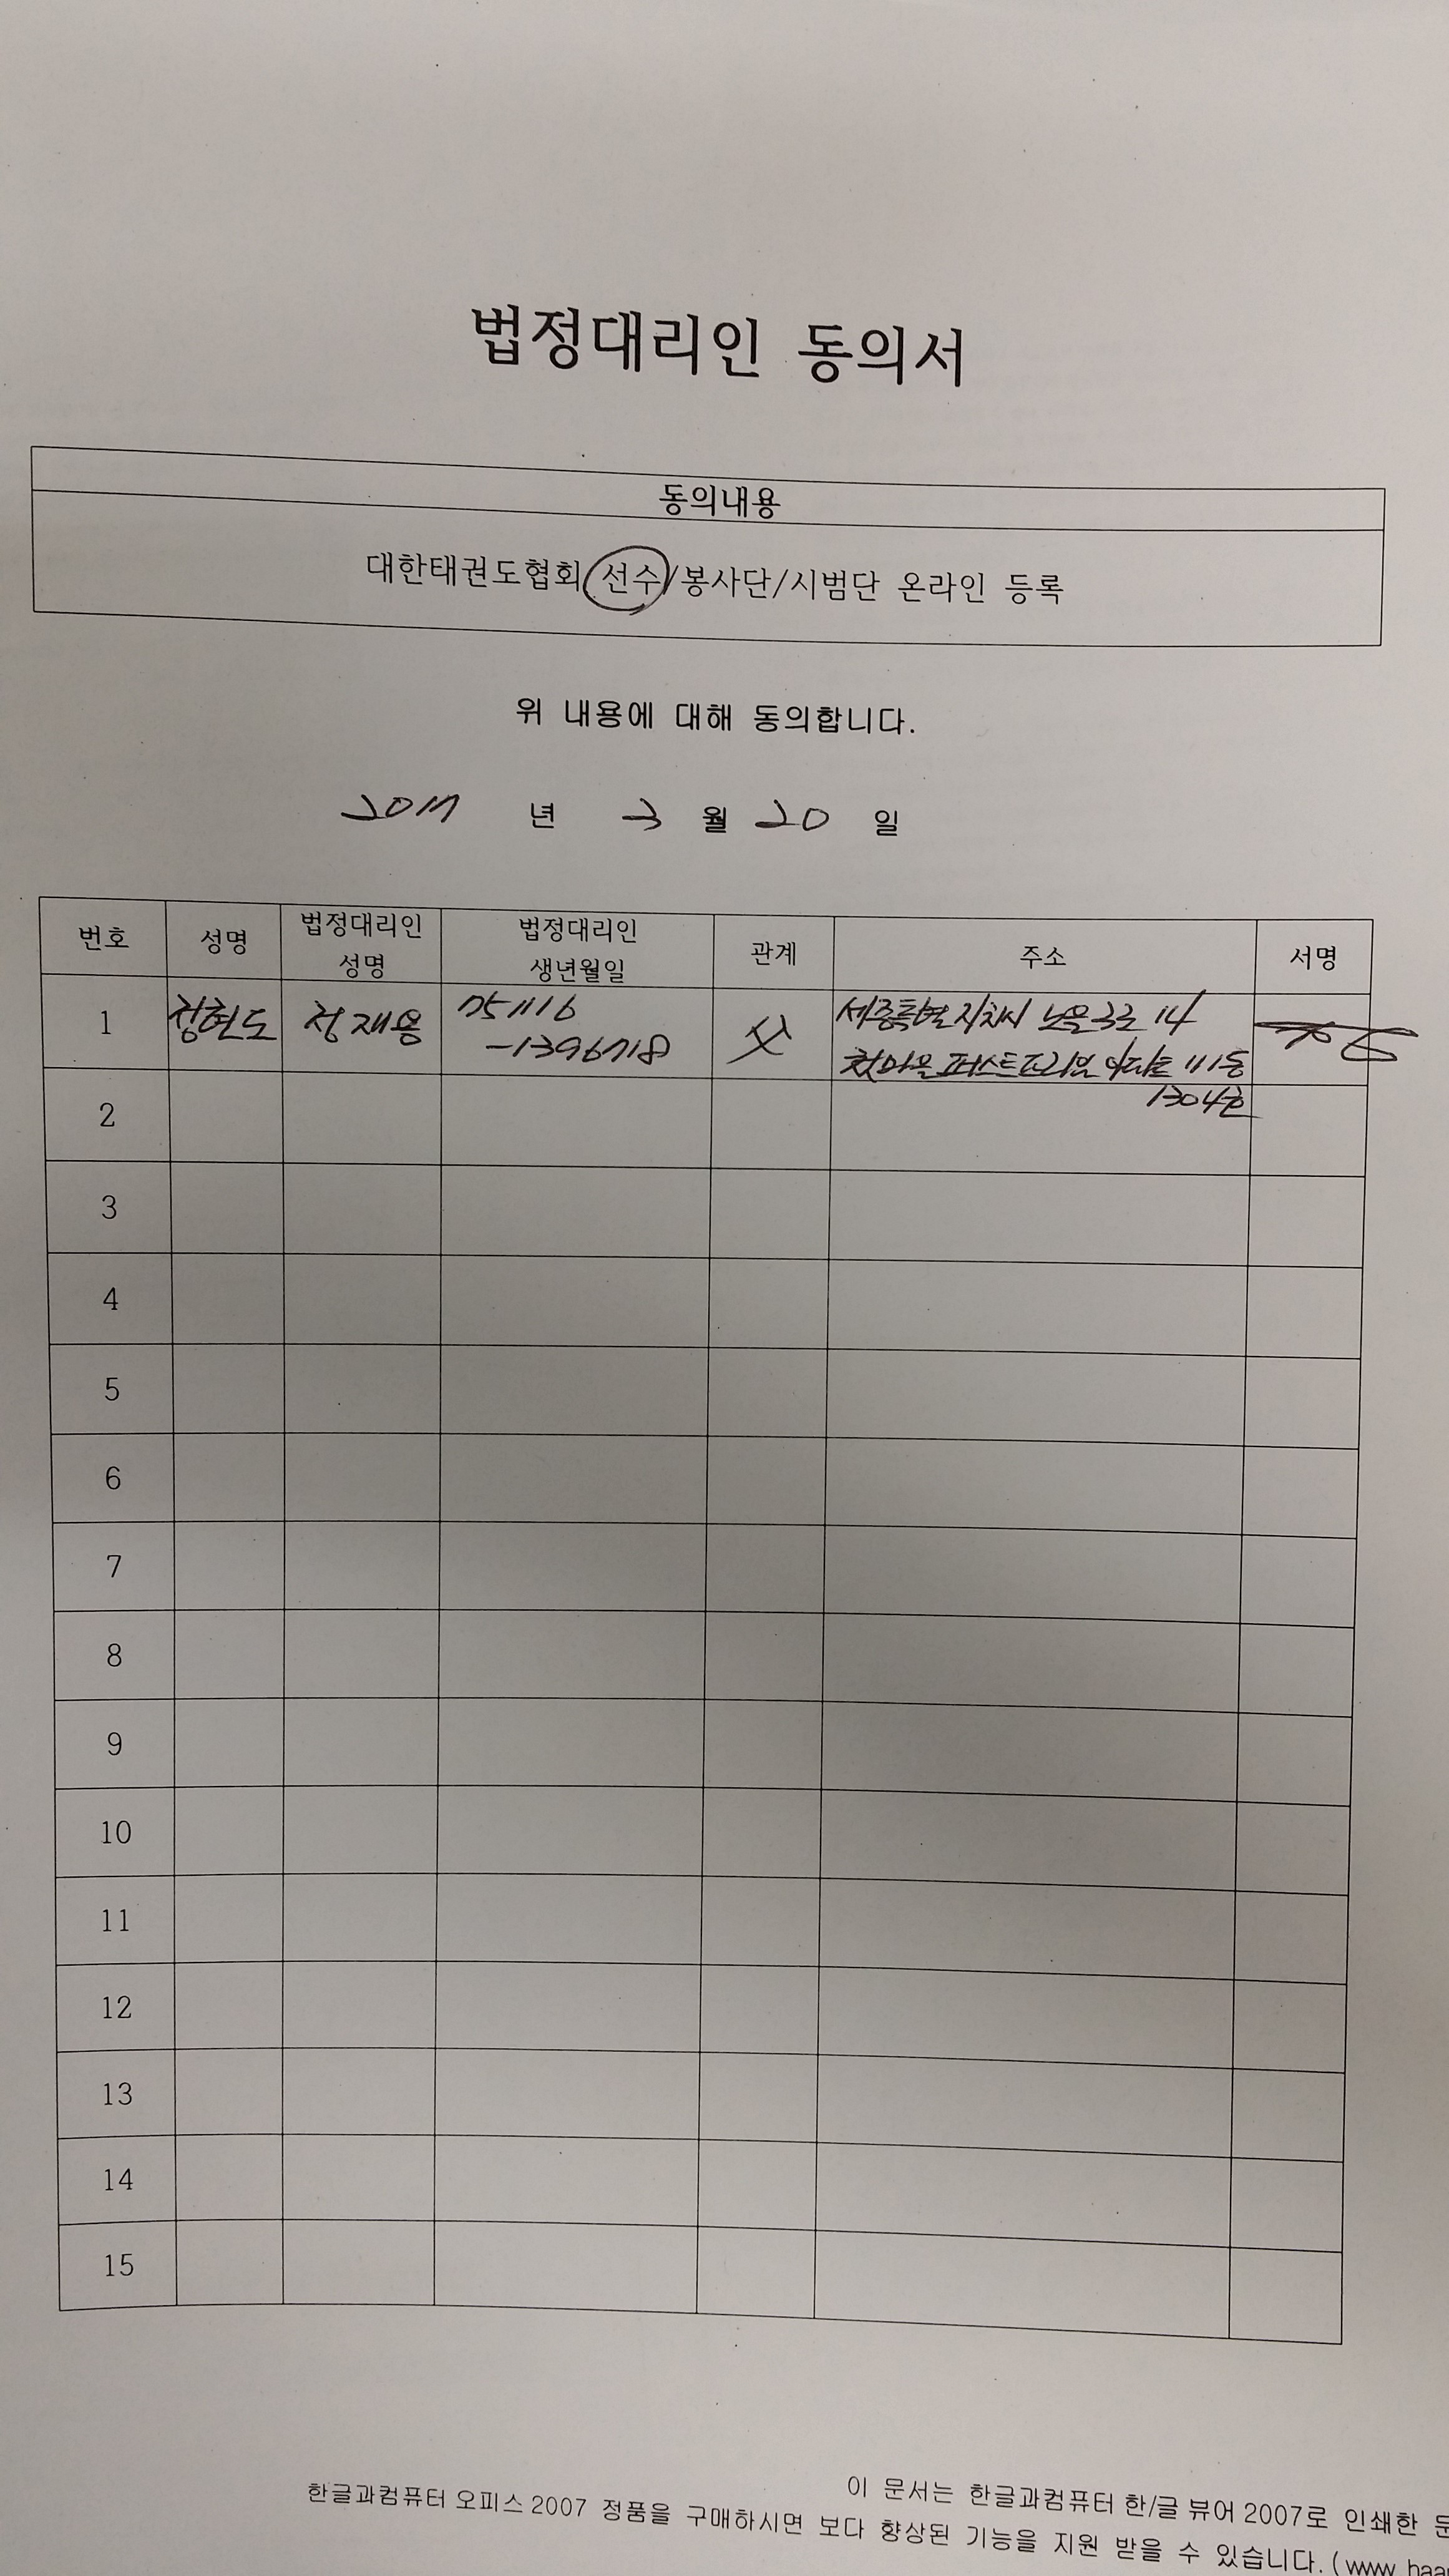 법정대리인 동의서
동의내용
대한태권도협회 선수/봉사단/시범단 온라인 등록
위 내용에 대해 동의합니다.
2017 년 3 월 20 일
번호 성명 법정대리인 성명 법정대리인 생년월일 관계 주소 서명
1 정현도 정재용 751116 父 세종특별자치시 노을3로 14
-1396718 첫마을 퍼스트프라임 아파트 111동
1304호
2
3
4
5
6
7
8
9
10
11
12
13
14
15
이 문서는 한글과컴퓨터 한/글 뷰어 2007로 인쇄한 문
한글과컴퓨터 오피스 2007 정품을 구매하시면 보다 향상된 기능을 지원 받을 수 있습니다. ( www.haa